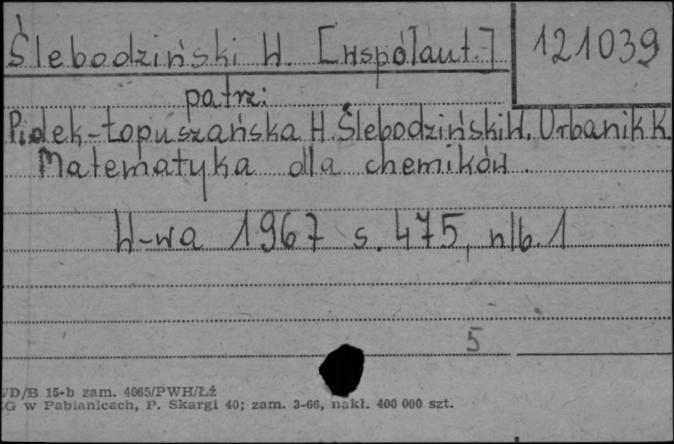 Ślebodziński W. [współaut.] 121039
patrz:
Pidek-Łopuszańska H. Ślebodziński W. Urbanik K.
Matematyka dla chemików.
W-wa 1967 s. 475, nlb. 1
5
VD/B 15-b zam. 4065/PWH/Łź
G w Pabianicach, P. Skargi 40; zam. 3-66, nakł. 400 000 szt.